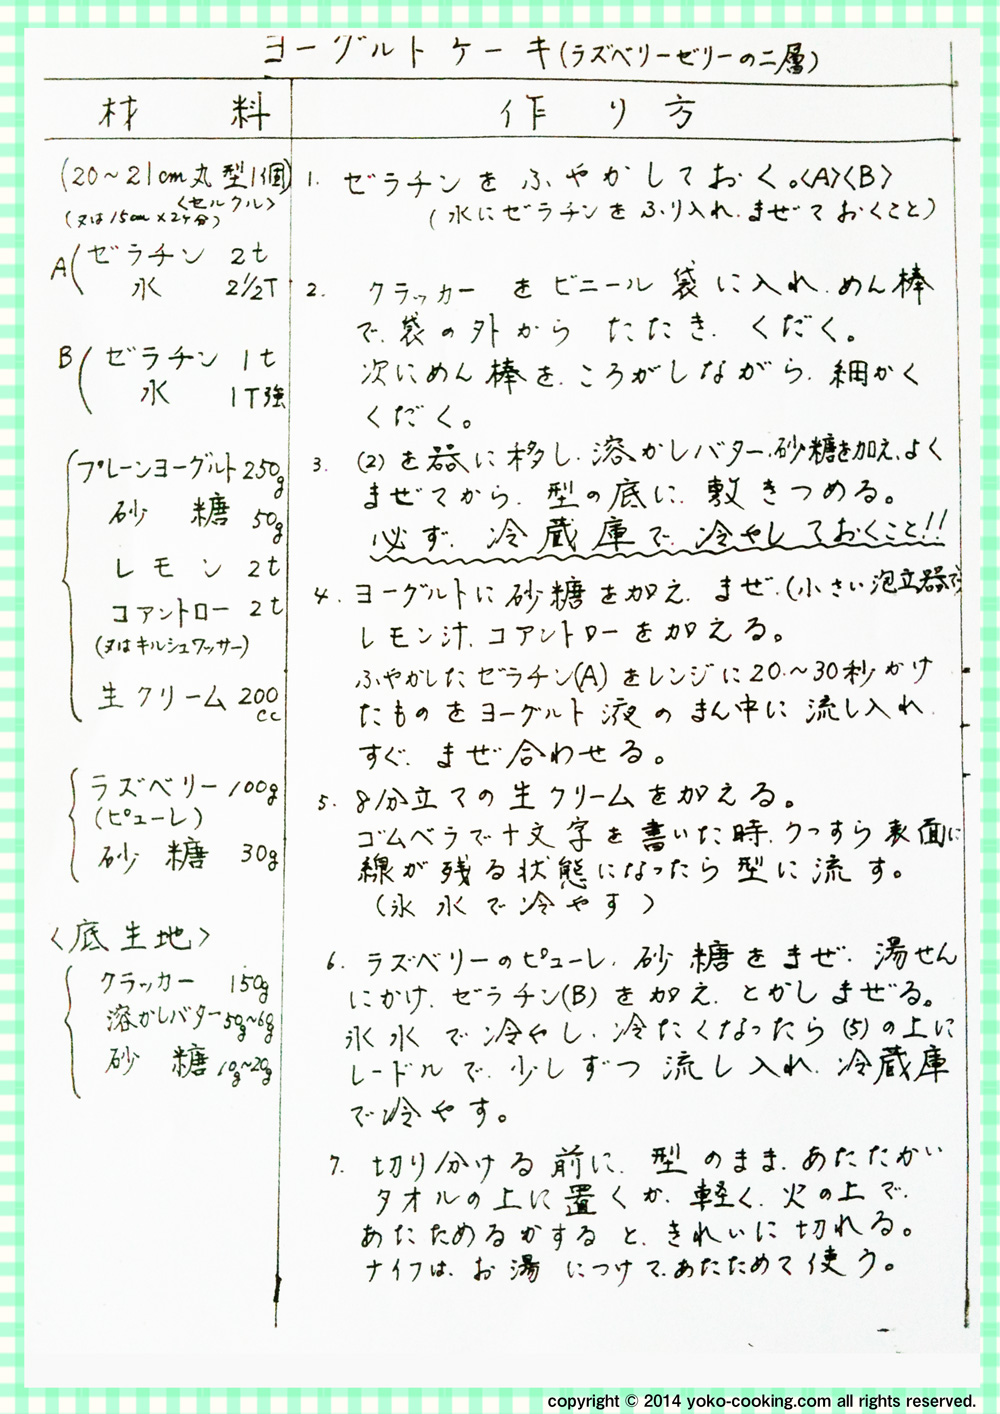 ヨーグルトケーキ(ラズベリーゼリーの二層)
材料
作り方
(20〜21cm丸型1個)
<セルクル>
(又は15cm×2ヶ分)
A ゼラチン 2t
水 2 1/2T
B ゼラチン 1t
水 1T強
プレーンヨーグルト 250g
砂糖 50g
レモン 2t
コアントロー 2t
(又はキルシュワッサー)
生クリーム 200cc
ラズベリー 100g
(ピューレ)
砂糖 30g
<底生地>
クラッカー 150g
溶かしバター 50g〜60g
砂糖 10g〜20g
1. ゼラチンをふやかしておく。<A><B>
(水にゼラチンをふり入れ、まぜておくこと)
2. クラッカーをビニール袋に入れ、めん棒
で、袋の外から たたき、くだく。
次にめん棒を、ころがしながら、細かく
くだく。
3. (2)を器に移し、溶かしバター、砂糖を加え、よく
まぜてから、型の底に、敷きつめる。
必ず、冷蔵庫で、冷やしておくこと!!
4. ヨーグルトに砂糖を加え、まぜ、(小さい泡立器で)
レモン汁、コアントローを加える。
ふやかしたゼラチン(A)をレンジに20〜30秒かけ
たものをヨーグルト液のまん中に流し入れ、
すぐ、まぜ合わせる。
5. 8分立ての生クリームを加える。
ゴムベラで十文字を書いた時、うっすら表面に
線が残る状態になったら型に流す。
(氷水で冷やす)
6. ラズベリーのピューレ、砂糖をまぜ、湯せん
にかけ、ゼラチン(B)を加え、とかしまぜる。
氷水で冷やし、冷たくなったら(5)の上に
レードルで、少しずつ流し入れ、冷蔵庫
で冷やす。
7. 切り分ける前に、型のまま、あたたかい
タオルの上に置くか、軽く、火の上で、
あたためるかすると、きれいに切れる。
ナイフは、お湯につけて、あたためて使う。
copyright © 2014 yoko-cooking.com all rights reserved.